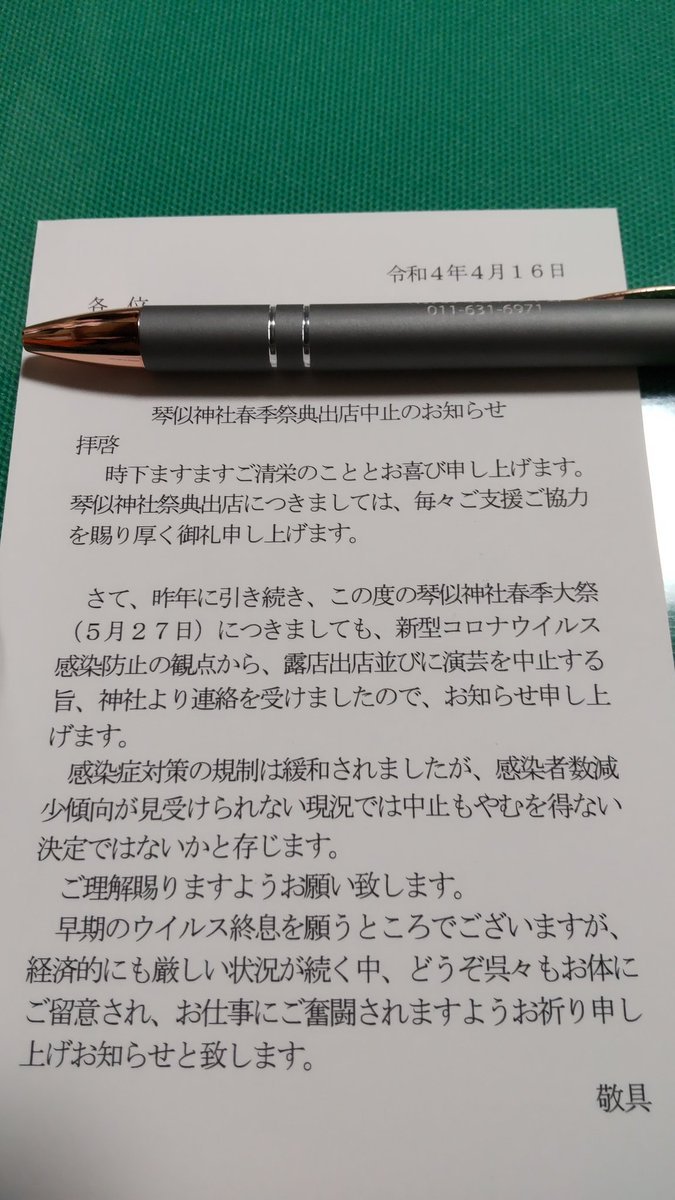 令和4年4月16日
各位
011-631-6971
琴似神社春季祭典出店中止のお知らせ
拝啓
時下ますますご清栄のこととお喜び申し上げます。
琴似神社祭典出店につきましては、毎々ご支援ご協力
を賜り厚く御礼申し上げます。
さて、昨年に引き続き、この度の琴似神社春季大祭
（5月27日）につきましても、新型コロナウイルス
感染防止の観点から、露店出店並びに演芸を中止する
旨、神社より連絡を受けましたので、お知らせ申し上
げます。
感染症対策の規制は緩和されましたが、感染者数減
少傾向が見受けられない現況では中止もやむを得ない
決定ではないかと存じます。
ご理解賜りますようお願い致します。
早期のウイルス終息を願うところでございますが、
経済的にも厳しい状況が続く中、どうぞ呉々もお体に
ご留意され、お仕事にご奮闘されますようお祈り申し
上げお知らせと致します。
敬具